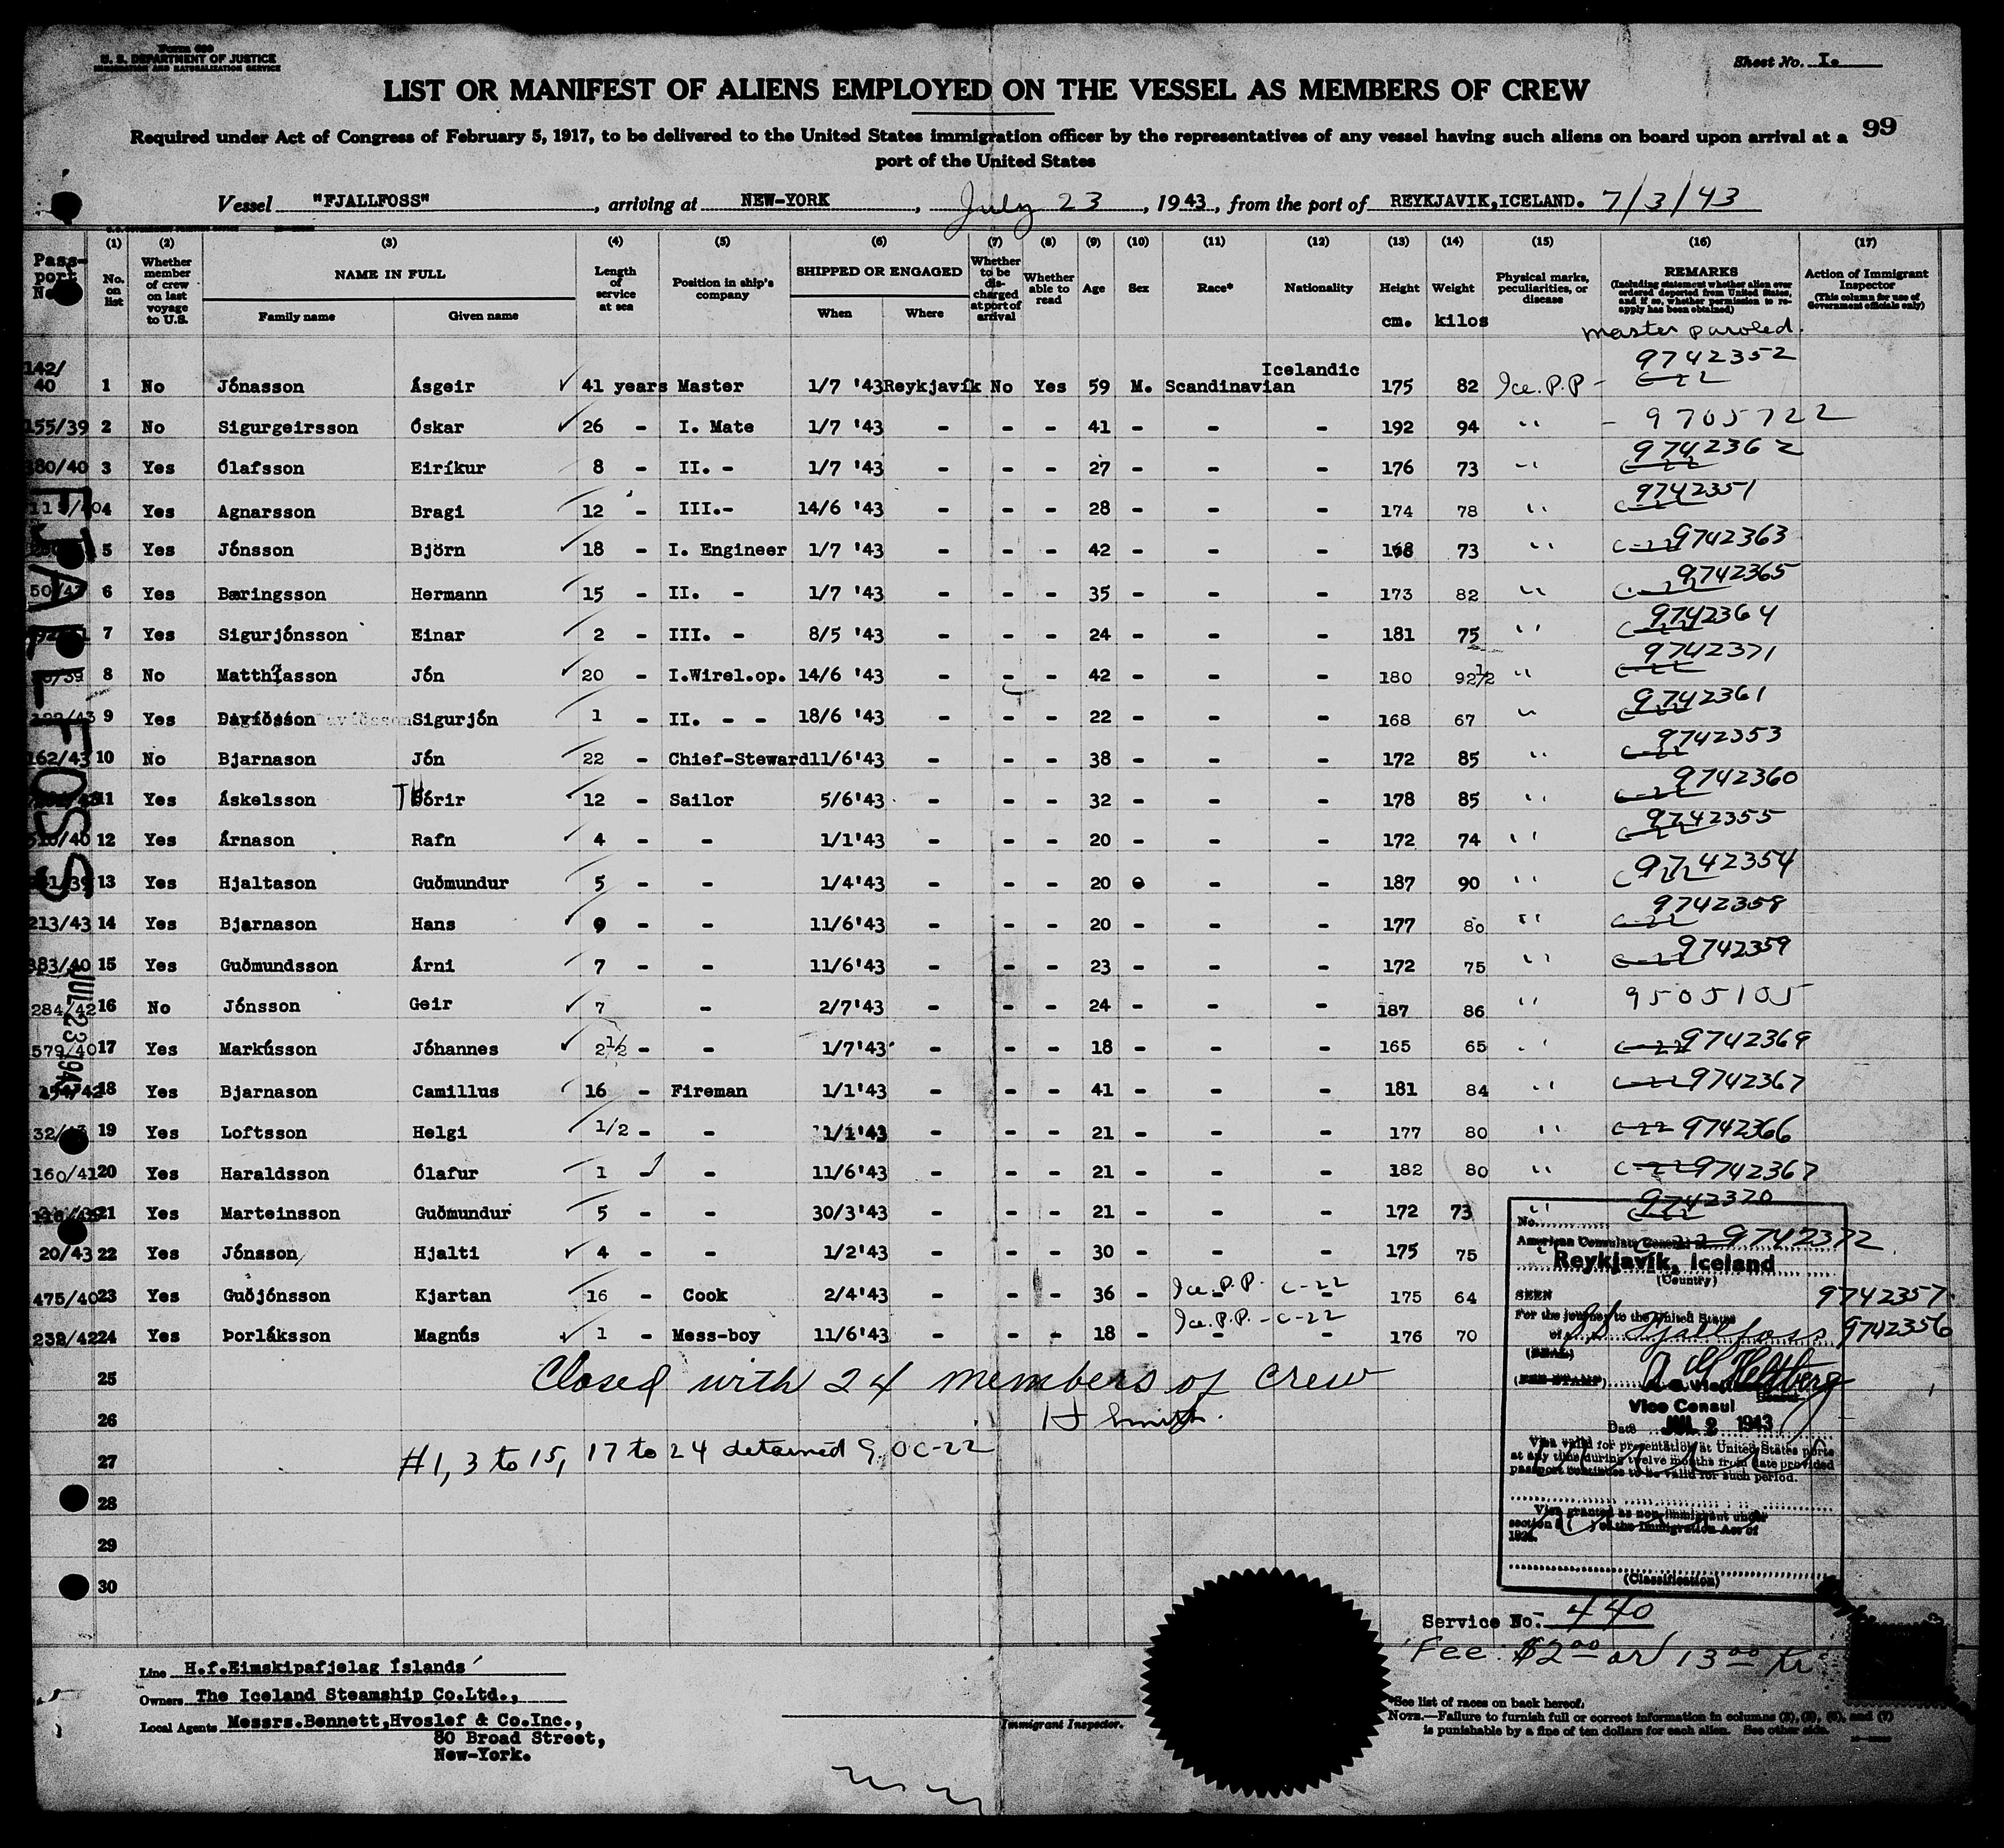 Form 680
U. S. DEPARTMENT OF JUSTICE
IMMIGRATION AND NATURALIZATION SERVICE
Sheet No. I.
LIST OR MANIFEST OF ALIENS EMPLOYED ON THE VESSEL AS MEMBERS OF CREW
99
Required under Act of Congress of February 5, 1917, to be delivered to the United States immigration officer by the representatives of any vessel having such aliens on board upon arrival at a
port of the United States
Vessel "FJALLFOSS", arriving at NEW-YORK, July 23, 1943, from the port of REYKJAVIK,ICELAND. 7/3/43
(1) (2) (3) (4) (5) (6) (7) (8) (9) (10) (11) (12) (13) (14) (15) (16) (17)
Passport No. No. on list Whether member of crew on last voyage to U.S. NAME IN FULL Family name Given name Length of service at sea Position in ship's company SHIPPED OR ENGAGED When Where Whether to be discharged at port of arrival Whether able to read Age Sex Race* Nationality Height cm. Weight kilos Physical marks, peculiarities, or disease REMARKS (Including statement whether alien ever ordered deported from United States, and if so, whether permission to reapply has been obtained) Action of Immigrant Inspector (This column for use of Government officials only)
master paroled.
142/40 1 No Jónasson Ásgeir 41 years Master 1/7 '43 Reykjavík No Yes 59 M. Scandinavian Icelandic 175 82 Ice. P.P - 9742352 C-22
155/39 2 No Sigurgeirsson Óskar 26 - I. Mate 1/7 '43 - - - 41 - - - 192 94 " - 9705722
380/40 3 Yes Ólafsson Eiríkur 8 - II. - 1/7 '43 - - - 27 - - - 176 73 " 9742362 C-22
4 Yes Agnarsson Bragi 12 - III.- 14/6 '43 - - - 28 - - - 174 78 " 9742351 C-22
5 Yes Jónsson Björn 18 - I. Engineer 1/7 '43 - - - 42 - - - 168 73 " C-22 9742363
6 Yes Bæringsson Hermann 15 - II. - 1/7 '43 - - - 35 - - - 173 82 " C-22 9742365
7 Yes Sigurjónsson Einar 2 - III. - 8/5 '43 - - - 24 - - - 181 75 " 9742364 C-22
8 No Matthíasson Jón 20 - I.Wirel.op. 14/6 '43 - - - 42 - - - 180 92½ " 9742371 C-22
9 Yes Davíðsson Sigurjón 1 - II. - - 18/6 '43 - - - 22 - - - 168 67 " 9742361 C-22
162/43 10 No Bjarnason Jón 22 - Chief-Steward 11/6'43 - - - 38 - - - 172 85 " 9742353 C-22
11 Yes Áskelsson TH Þórir 12 - Sailor 5/6'43 - - - 32 - - - 178 85 " 9742360 C-22
510/40 12 Yes Árnason Rafn 4 - - 1/1'43 - - - 20 - - - 172 74 " 9742355 C-22
13 Yes Hjaltason Guðmundur 5 - - 1/4'43 - - - 20 - - - 187 90 " 9742354 C-22
213/43 14 Yes Bjarnason Hans 9 - - 11/6'43 - - - 20 - - - 177 80 " 9742358 C-22
383/40 15 Yes Guðmundsson Árni 7 - - 11/6'43 - - - 23 - - - 172 75 " 9742359 C-22
284/42 16 No Jónsson Geir 7 - 2/7'43 - - - 24 - - - 187 86 " 9505105
579/40 17 Yes Markússon Jóhannes 2½ - - 1/7'43 - - - 18 - - - 165 65 " C-22 9742369
254/42 18 Yes Bjarnason Camillus 16 - Fireman 1/1'43 - - - 41 - - - 181 84 " C-22 9742367
19 Yes Loftsson Helgi 1/2 - - 1/1'43 - - - 21 - - - 177 80 " C-22 9742366
160/41 20 Yes Haraldsson Ólafur 1 - - 11/6'43 - - - 21 - - - 182 80 " C-22 9742367
21 Yes Marteinsson Guðmundur 5 - - 30/3'43 - - - 21 - - - 172 73 " 9742370 C-22
20/43 22 Yes Jónsson Hjalti 4 - - 1/2'43 - - - 30 - - - 175 75 " C-22 9742372
475/40 23 Yes Guðjónsson Kjartan 16 - Cook 2/4'43 - - - 36 - Ice. P.P. C-22 175 64 9742357
232/42 24 Yes Þorláksson Magnús 1 - Mess-boy 11/6'43 - - - 18 - Ice. P.P. - C-22 176 70 9742356
FJALLFOSS
JUL 23 1943
25
Closed with 24 members of crew
26
H Smith.
27
#1, 3 to 15, 17 to 24 detained 9.0 C-22
28
29
30
No.
American Consulate General at
Reykjavik, Iceland
(Country)
SEEN
For the journey to the United States
of SS Fjallfoss
(SEAL)
(FEE STAMP)
Vice Consul
Date JUL 2 1943
Visa valid for presentation at United States ports
at any time during twelve months from date provided
passport continues to be valid for such period.
Visa granted as non-immigrant under
section 3 ( ) of the Immigration Act of
1924.
(Classification)
Service No. 440
Fee: $2.00 or 13.00 kr
Line H.f.Eimskipafjelag Íslands
Owners The Iceland Steamship Co.Ltd.,
Local Agents Messrs.Bennett,Hvoslef & Co.Inc.,
80 Broad Street,
New-York.
Immigrant Inspector.
*See list of races on back hereof.
NOTE.—Failure to furnish full or correct information in columns (2), (3), (6), and (7)
is punishable by a fine of ten dollars for each alien. See other side.